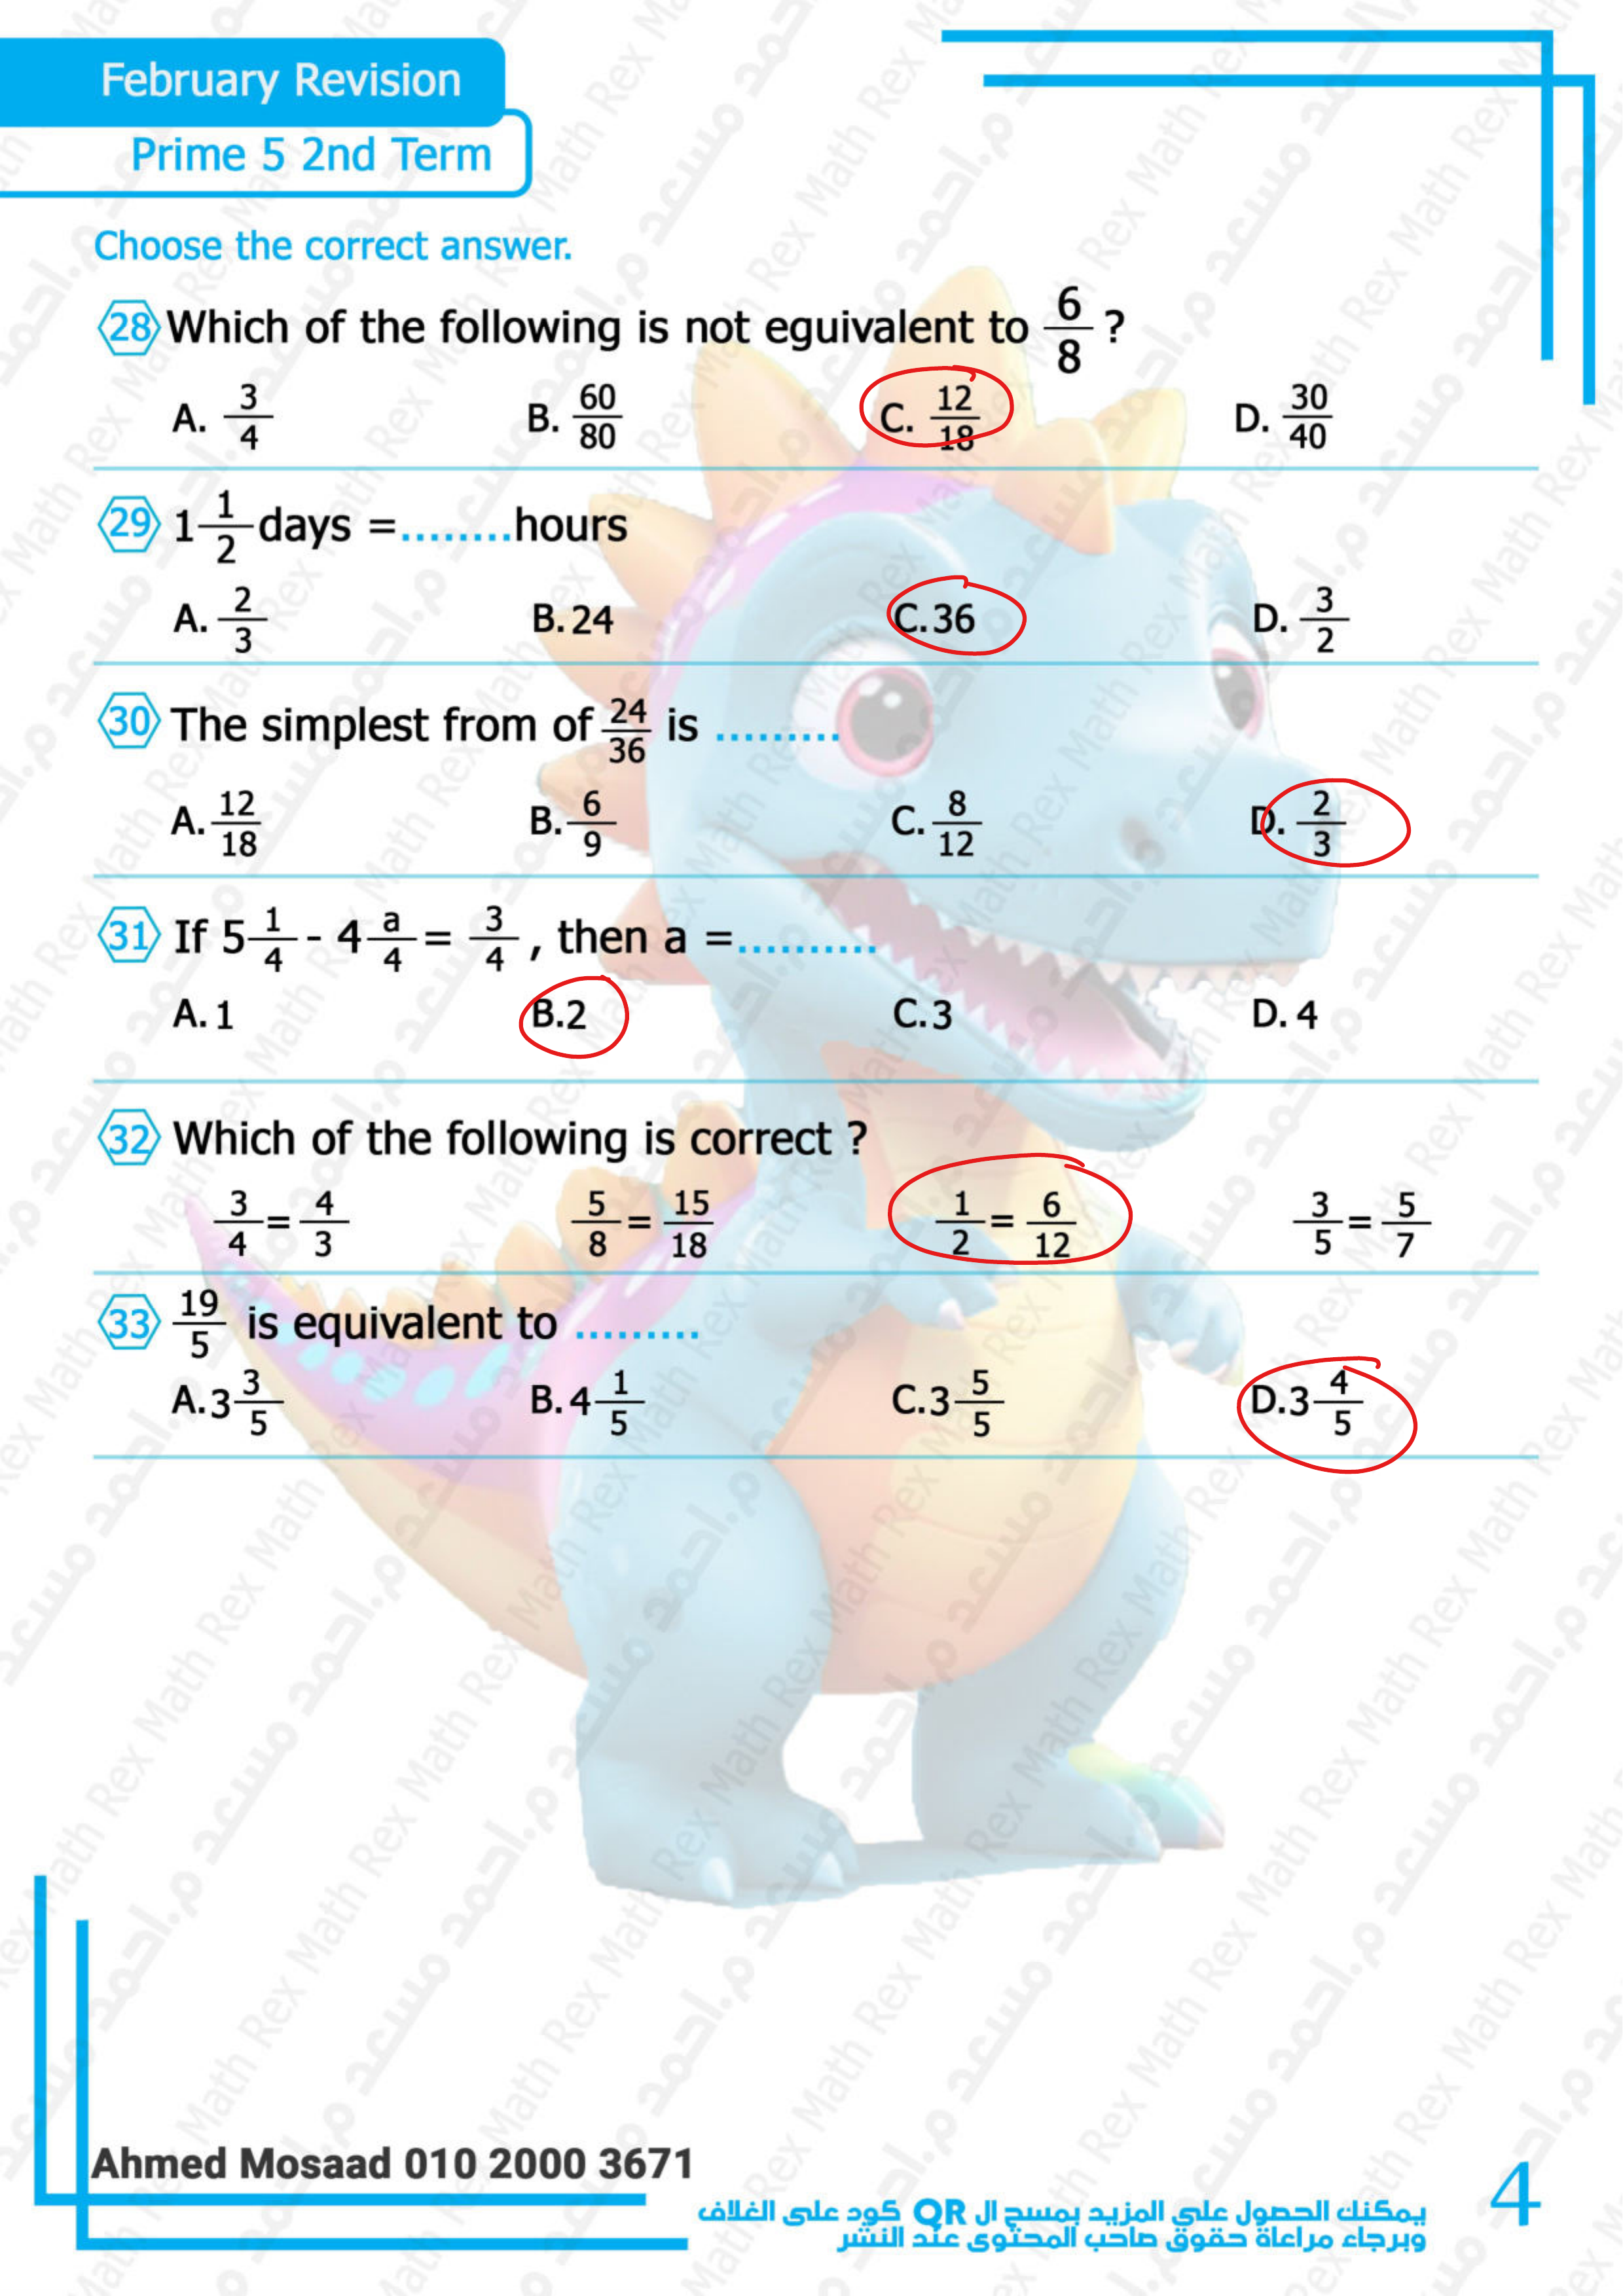 February Revision
Prime 5 2nd Term
Choose the correct answer.
28 Which of the following is not eguivalent to 6/8 ?
A. 3/4 B. 60/80 C. 12/18 D. 30/40
29 1 1/2 days =........hours
A. 2/3 B. 24 C. 36 D. 3/2
30 The simplest from of 24/36 is .........
A. 12/18 B. 6/9 C. 8/12 D. 2/3
31 If 5 1/4 - 4 a/4 = 3/4 , then a =..........
A. 1 B. 2 C. 3 D. 4
32 Which of the following is correct ?
3/4 = 4/3 5/8 = 15/18 1/2 = 6/12 3/5 = 5/7
33 19/5 is equivalent to .........
A. 3 3/5 B. 4 1/5 C. 3 5/5 D. 3 4/5
Ahmed Mosaad 010 2000 3671
يمكنك الحصول على المزيد بمسح ال QR كود على الغلاف
وبرجاء مراعاة حقوق صاحب المحتوى عند النشر
4
Math Rex
م.احمد مسعد